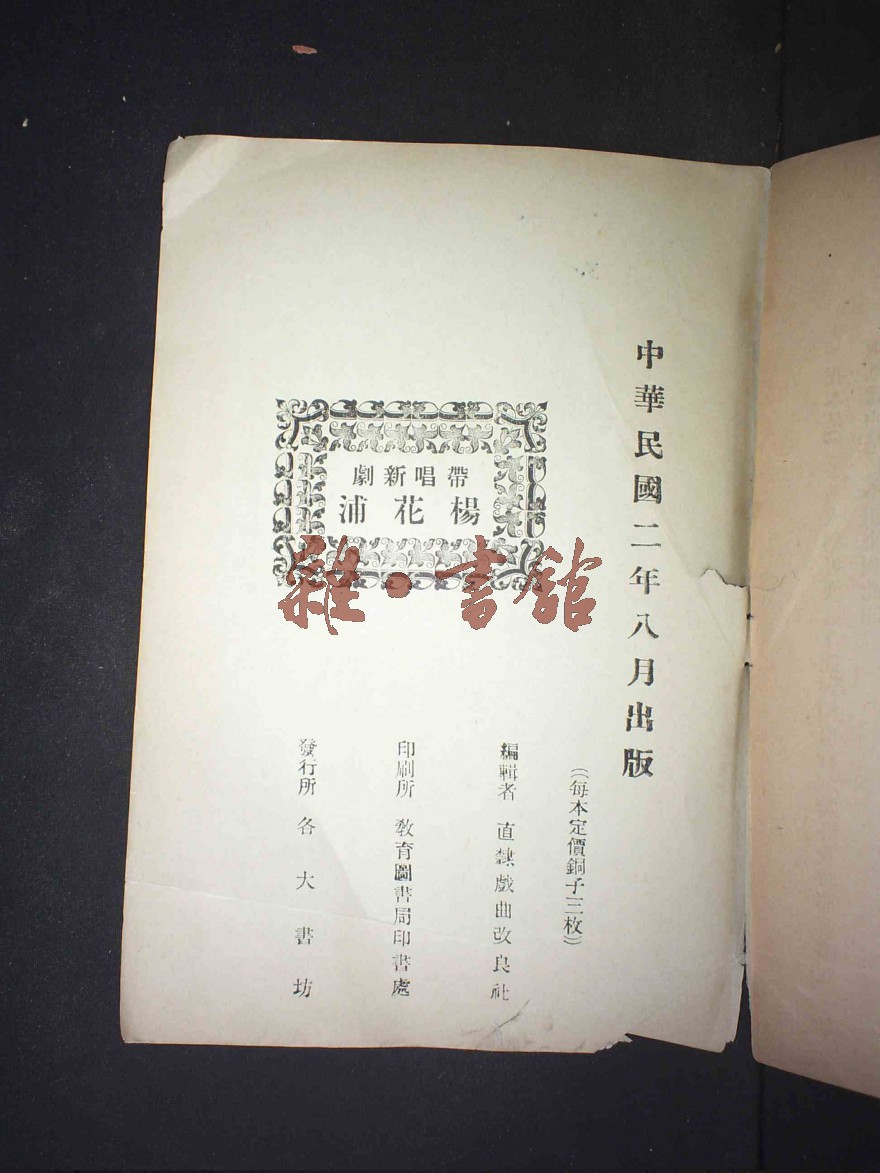 中華民國二年八月出版
(每本定價銅子三枚)
帶唱新劇
楊花浦
編輯者 直隸戲曲改良社
印刷所 教育圖書局印書處
發行所 各大書坊
雜·書館